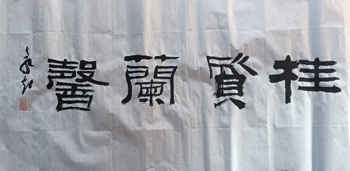 桂質蘭馨